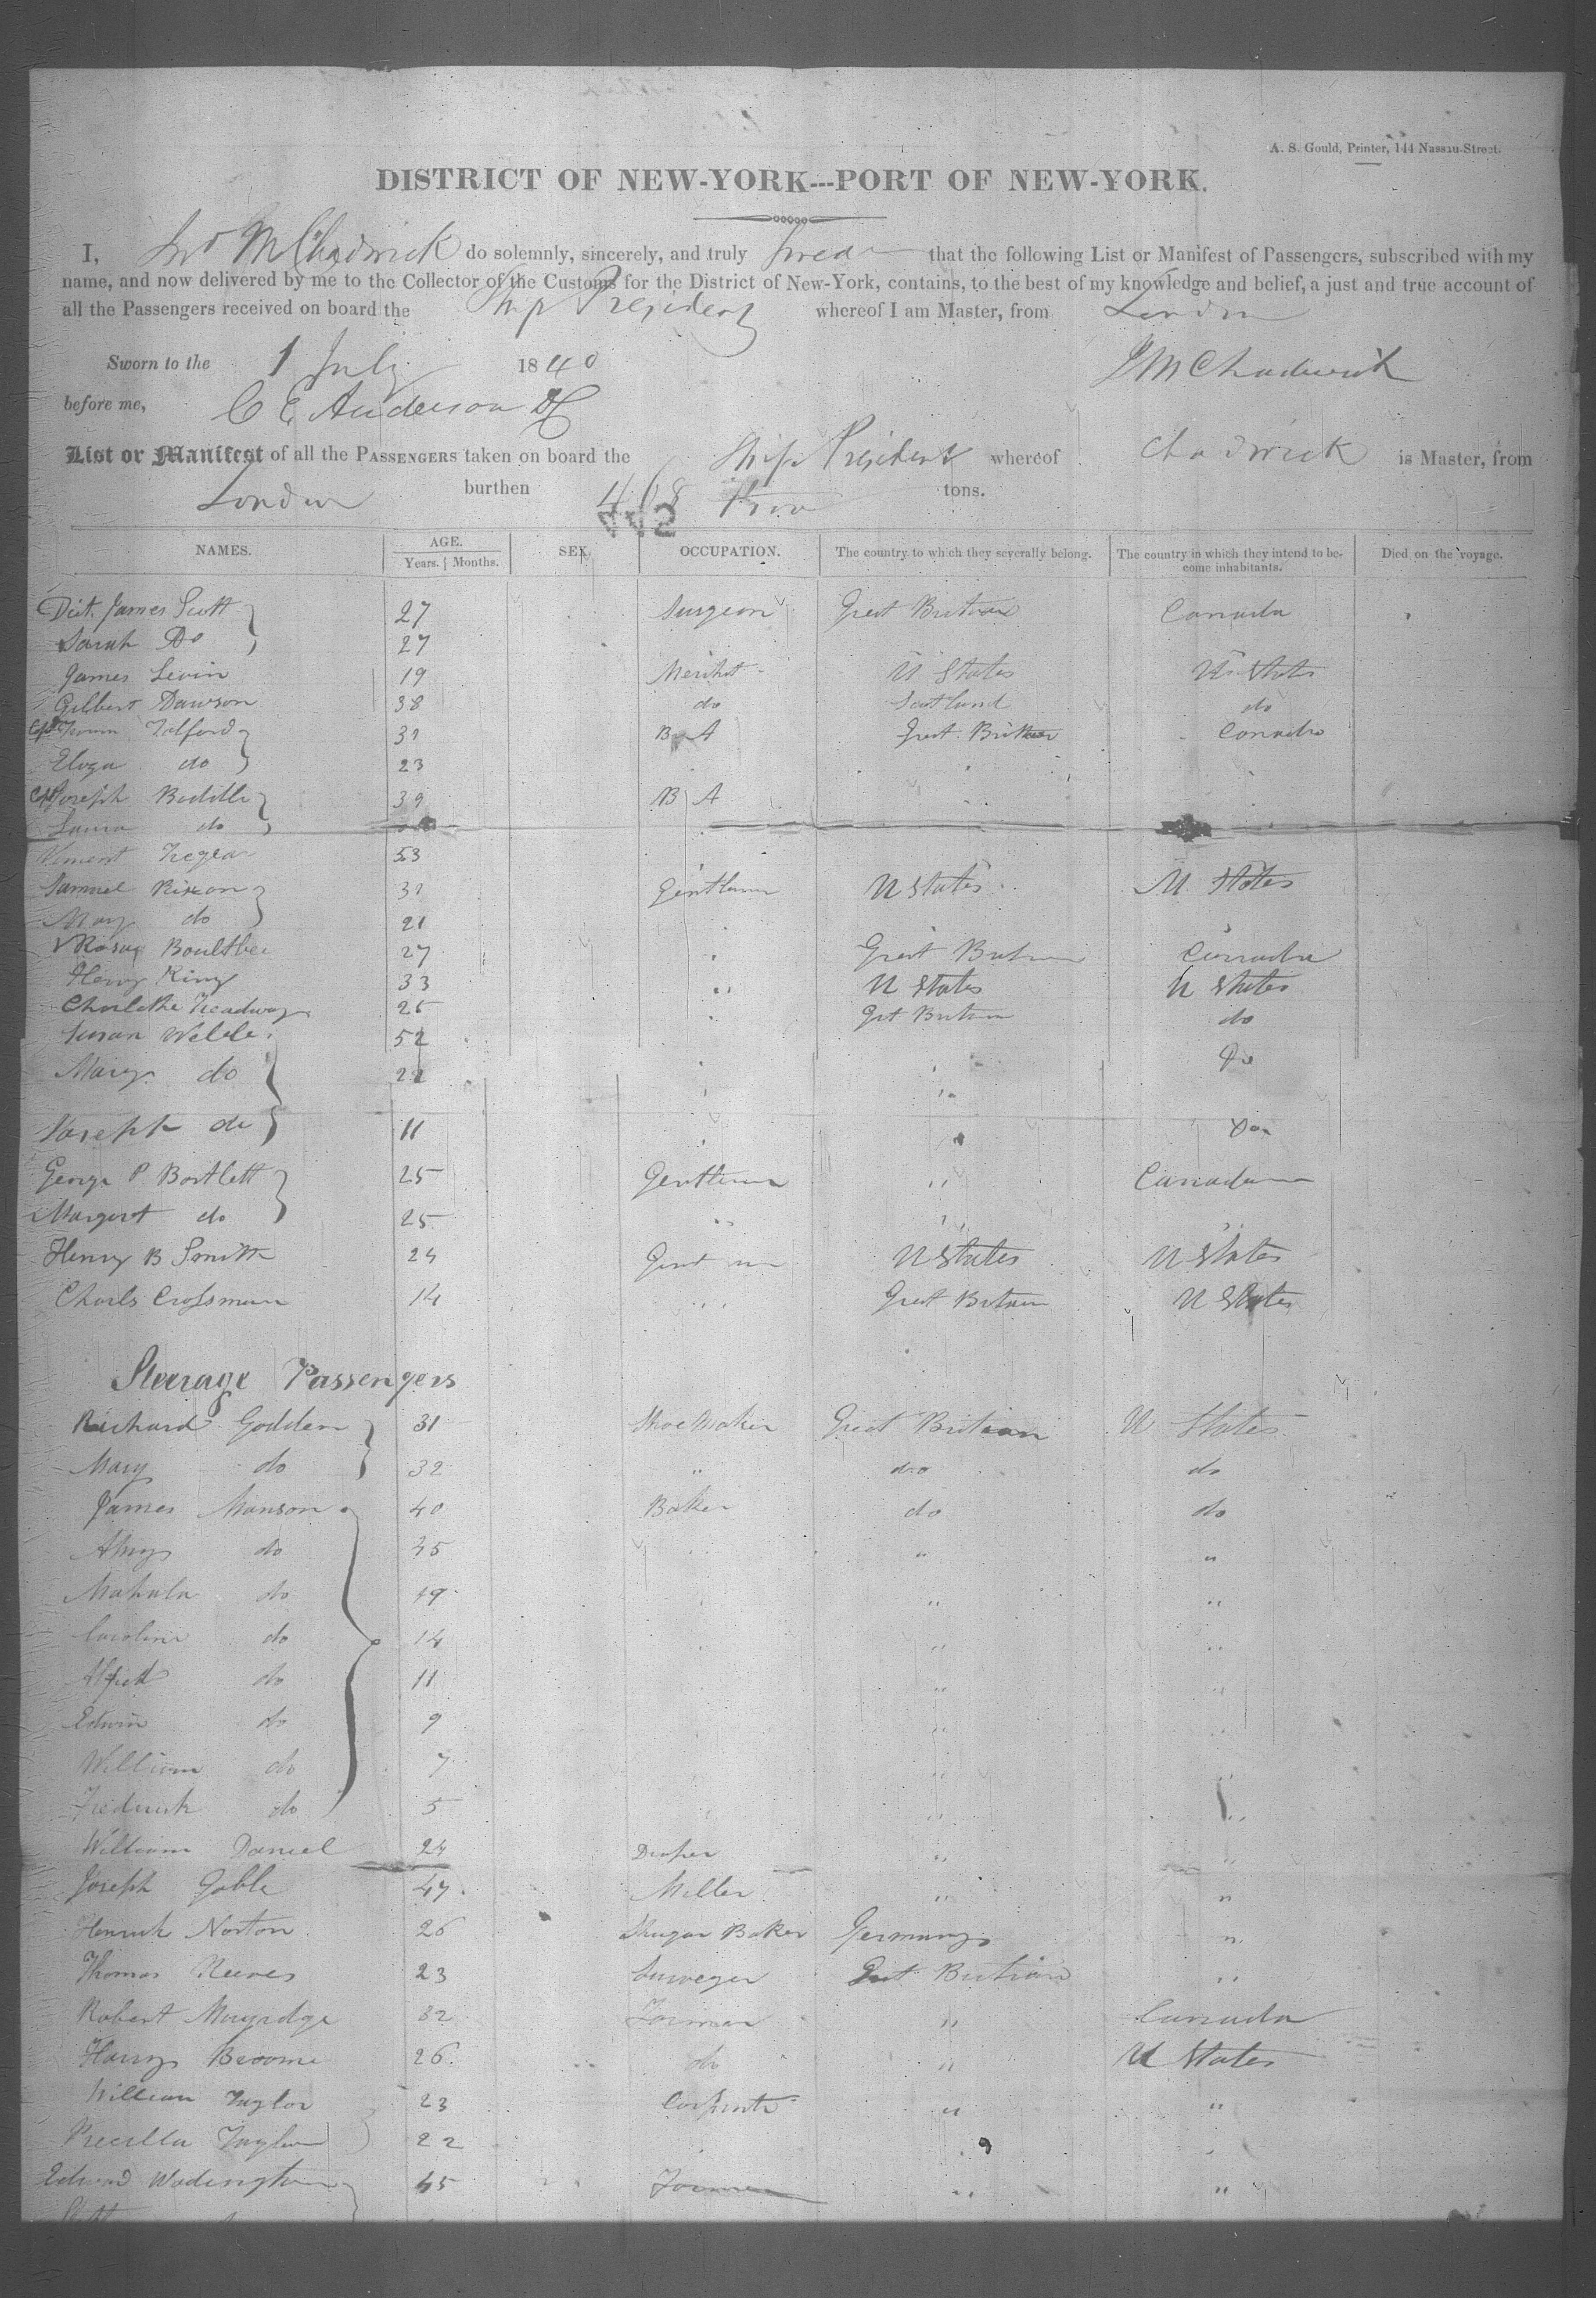 A. S. Gould, Printer, 144 Nassau-Street.
DISTRICT OF NEW-YORK---PORT OF NEW-YORK.
I, Jno M Chadwick do solemnly, sincerely, and truly swear that the following List or Manifest of Passengers, subscribed with my
name, and now delivered by me to the Collector of the Customs for the District of New-York, contains, to the best of my knowledge and belief, a just and true account of
all the Passengers received on board the Ship President whereof I am Master, from London
Sworn to the 1 July 1840 J M Chadwick
before me, C E Anderson
List or Manifest of all the PASSENGERS taken on board the Ship President whereof Chadwick is Master, from
London burthen 468 tons.
NAMES. AGE. SEX. OCCUPATION. The country to which they severally belong. The country in which they intend to become inhabitants. Died on the voyage.
Years. Months.
James Scott 27 Surgeon Great Britian Canada
Sarah Do 27
James Levin 19 Mercht U States U States
Gilbert Dawson 38 do Scotland do
Telford 31 B A Great Britian Canada
Eliza do 23
Joseph 39 B A
Laura do
53
Samuel Rixon 31 Gentleman U States U States
Mary do 21
Boultbee 27 " Great Britain Canada
Henry King 33 " U States U States
Charlotte Treadway 25 " Grt Britain do
Susan 52
Mary do 22 " " Do
Joseph do 11 " " Do
George P Bartlett 25 Gentleman " Canada
Margart do 25 " " "
Henry B Smith 24 Gent m U States U States
Charls Crossman 14 " Great Britain U States
Steerage Passengers
Richard Godden 31 Shoe Maker Great Britian U States
Mary do 32 " do do
James Manson 40 Baker do do
do 45 " "
Mahala do 19 " "
Caroline do 14 " "
Alfred do 11 " "
Edwin do 9 " "
William do 7 " "
Frederick do 5 " "
William Daniel 24 Draper " "
Joseph Goble 47 Miller " "
Norton 26 Shugar Baker Germany "
Thomas Reeves 23 Surveyer Grt Britian "
Robert 32 Farmer " Canada
Harry Broome 26 do " U States
William Taylor 23 Carpenter " "
Precilla Taylor 22
Edward Wadington 45 Farmer " "